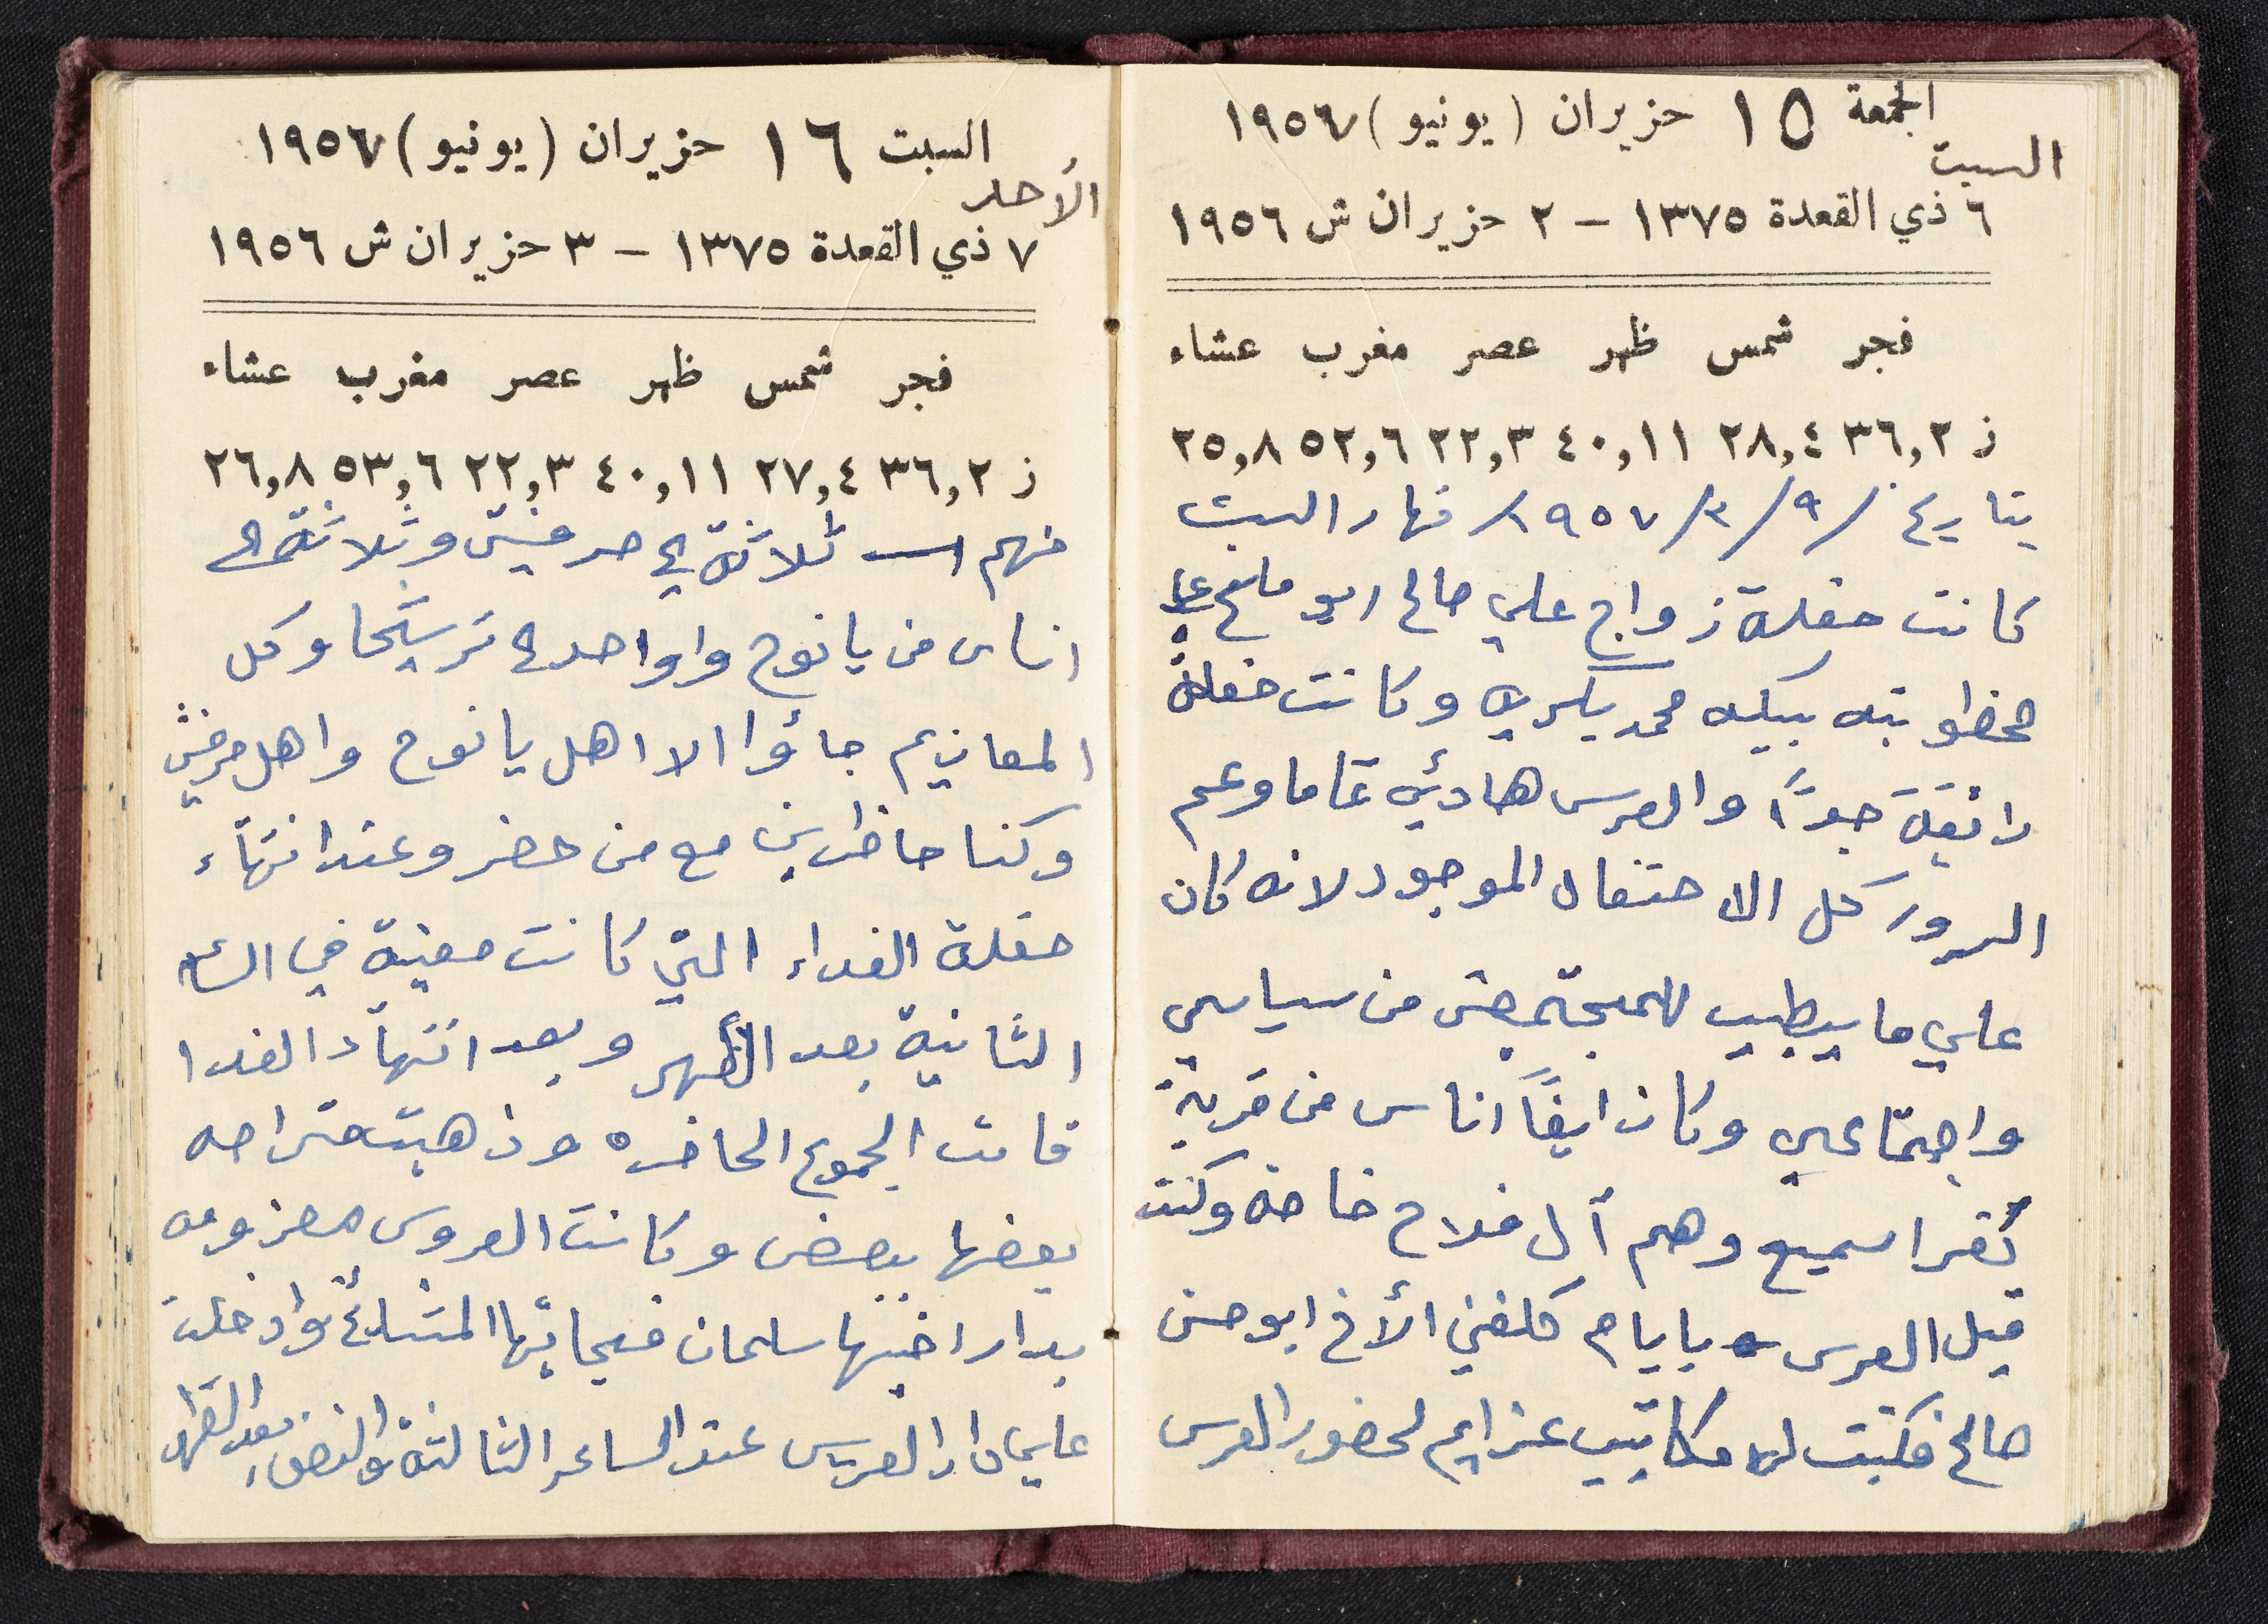 الجمعة ١٥ حزيران (يونيو) ١٩٥٦٧
السبت
٦ ذي القعدة ١٣٧٥ – ٢ حزيران ش ١٩٥٦
فجر شمس ظهر عصر مغرب عشاء
ز ٣٦,٢ ٢٨,٤ ٤٠,١١ ٢٢,٣ ٥٢,٦ ٢٥,٨
بتاريخ ٩/٣/١٩٥٧ نهار السبت
كانت حفلة زواج علي صالح ابو ملح على
مخطوبته بيكه محمد بكريه وكانت حفلة
رائقة جداً والعرس هادئ تماما وعم
السرور كل الاحتفال الموجود لانه كان
على ما يطيب للمجتمعين من سياسي
واجتماعي وكان ايضاً اناس من قرية
كفرا سميع وهم آل فلاح خاصة وكنت
قبل العرس بايام كلفني الأخ ابو حسن
صالح فكتبت له مكاتيب عزايم لحضور العرس
السبت ١٦ حزيران (يونيو) ١٩٥٦٧
الأحد
٧ ذي القعدة ١٣٧٥ – ٣ حزيران ش ١٩٥٦
فجر شمس ظهر عصر مغرب عشاء
ز ٣٦,٢ ٢٧,٤ ٤٠,١١ ٢٢,٣ ٥٣,٦ ٢٦,٨
منهم ثلاثة لحرفيش وثلاثة الى
اناس من يانوح وواحده ترشيحا وكل
المعازيم جاؤا الا اهل يانوح واهل حرفيش
وكنا حاظرين مع من حضر وعند انتهاء
حفلة الغداء التي كانت معينة في الساعه
الثانية بعد الظهر وبعد انتهاء الغدا
قامت الجموع الحاضره وذهبت متراحه
بعضها ببعض وكانت العروس معزومه
بدار اخيها سلمان فجابتها النساء وادخلت
على دار العريس عند الساعه الثالثة والنصف بعد الظهر